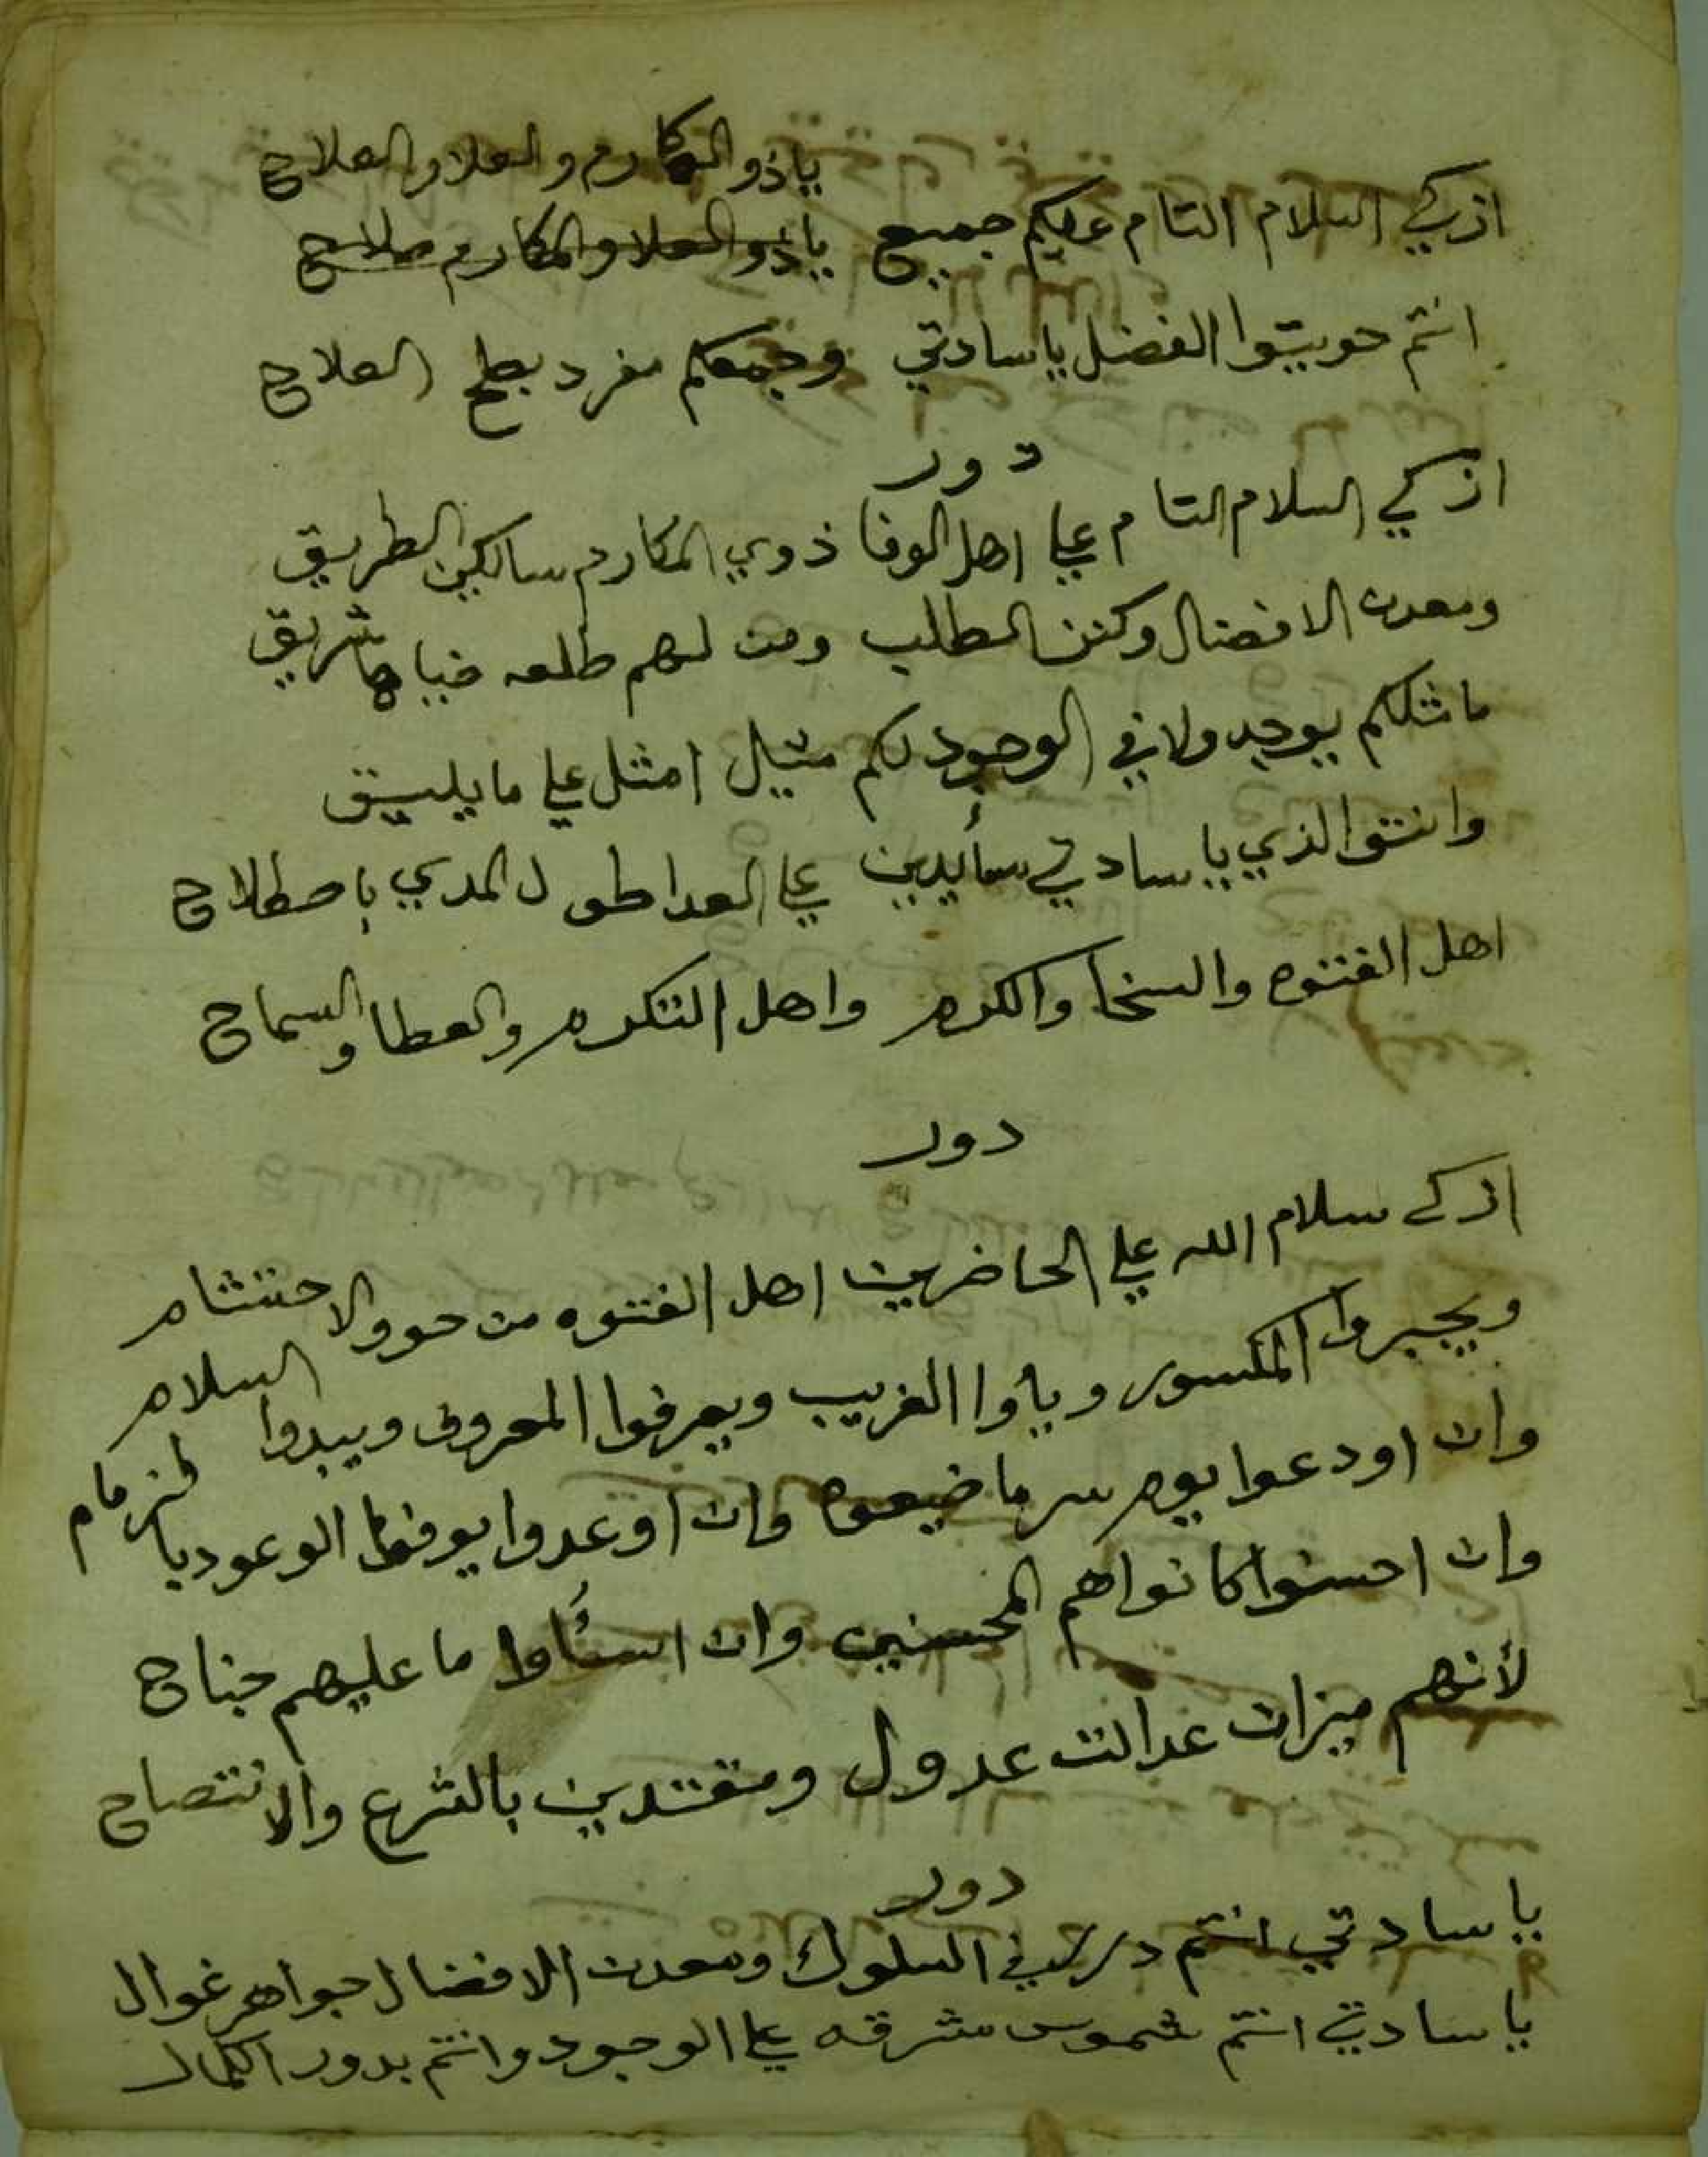 ياذو المكارم والعلا والفلاح
ازكي السلام التام عليكم جميع ياذو العلا والمكارم ملاح
انتم حويتوا الفضل يا سادتي وجمعكم مفرد بطح الفلاح
دور
ازكي السلام التام علي اهل الوفا ذوي المكارم سالكين الطريق
ومعدن الافضال وكنز المطلب ومن لهم طلعه ضياها شريق
ما مثلكم يوجد ولا في الوجود لكم مثيل امثل علي ما يليق
وانتوا الذي يا سادتي سأيدين علي العدا طول المدي باصطلاح
اهل الفتوه والسخا والكرم واهل التكرم والعطا والسماح
دور
ازكى سلام الله علي الحاضرين اهل الفتوه من حووا الاحتشام
ويجبروا المكسور وياوا الغريب ويعرفوا المعروف ويبدوا السلام
وان اودعوا يوم سر ما ضيعوه وان اوعدوا يوفوا الوعود يالزمام
وان احسنوا كانوا هم المحسنين وان اسئاوا ما عليهم جناح
لأنهم ميزان عدالت عدول ومقتدين بالشرع والانتصاح
دور
يا سادتي انتم درر في السلوك ومعدن الافضال جواهر غوال
يا سادتي انتم شموس مشرقه علي الوجود وانتم بدور الكمال